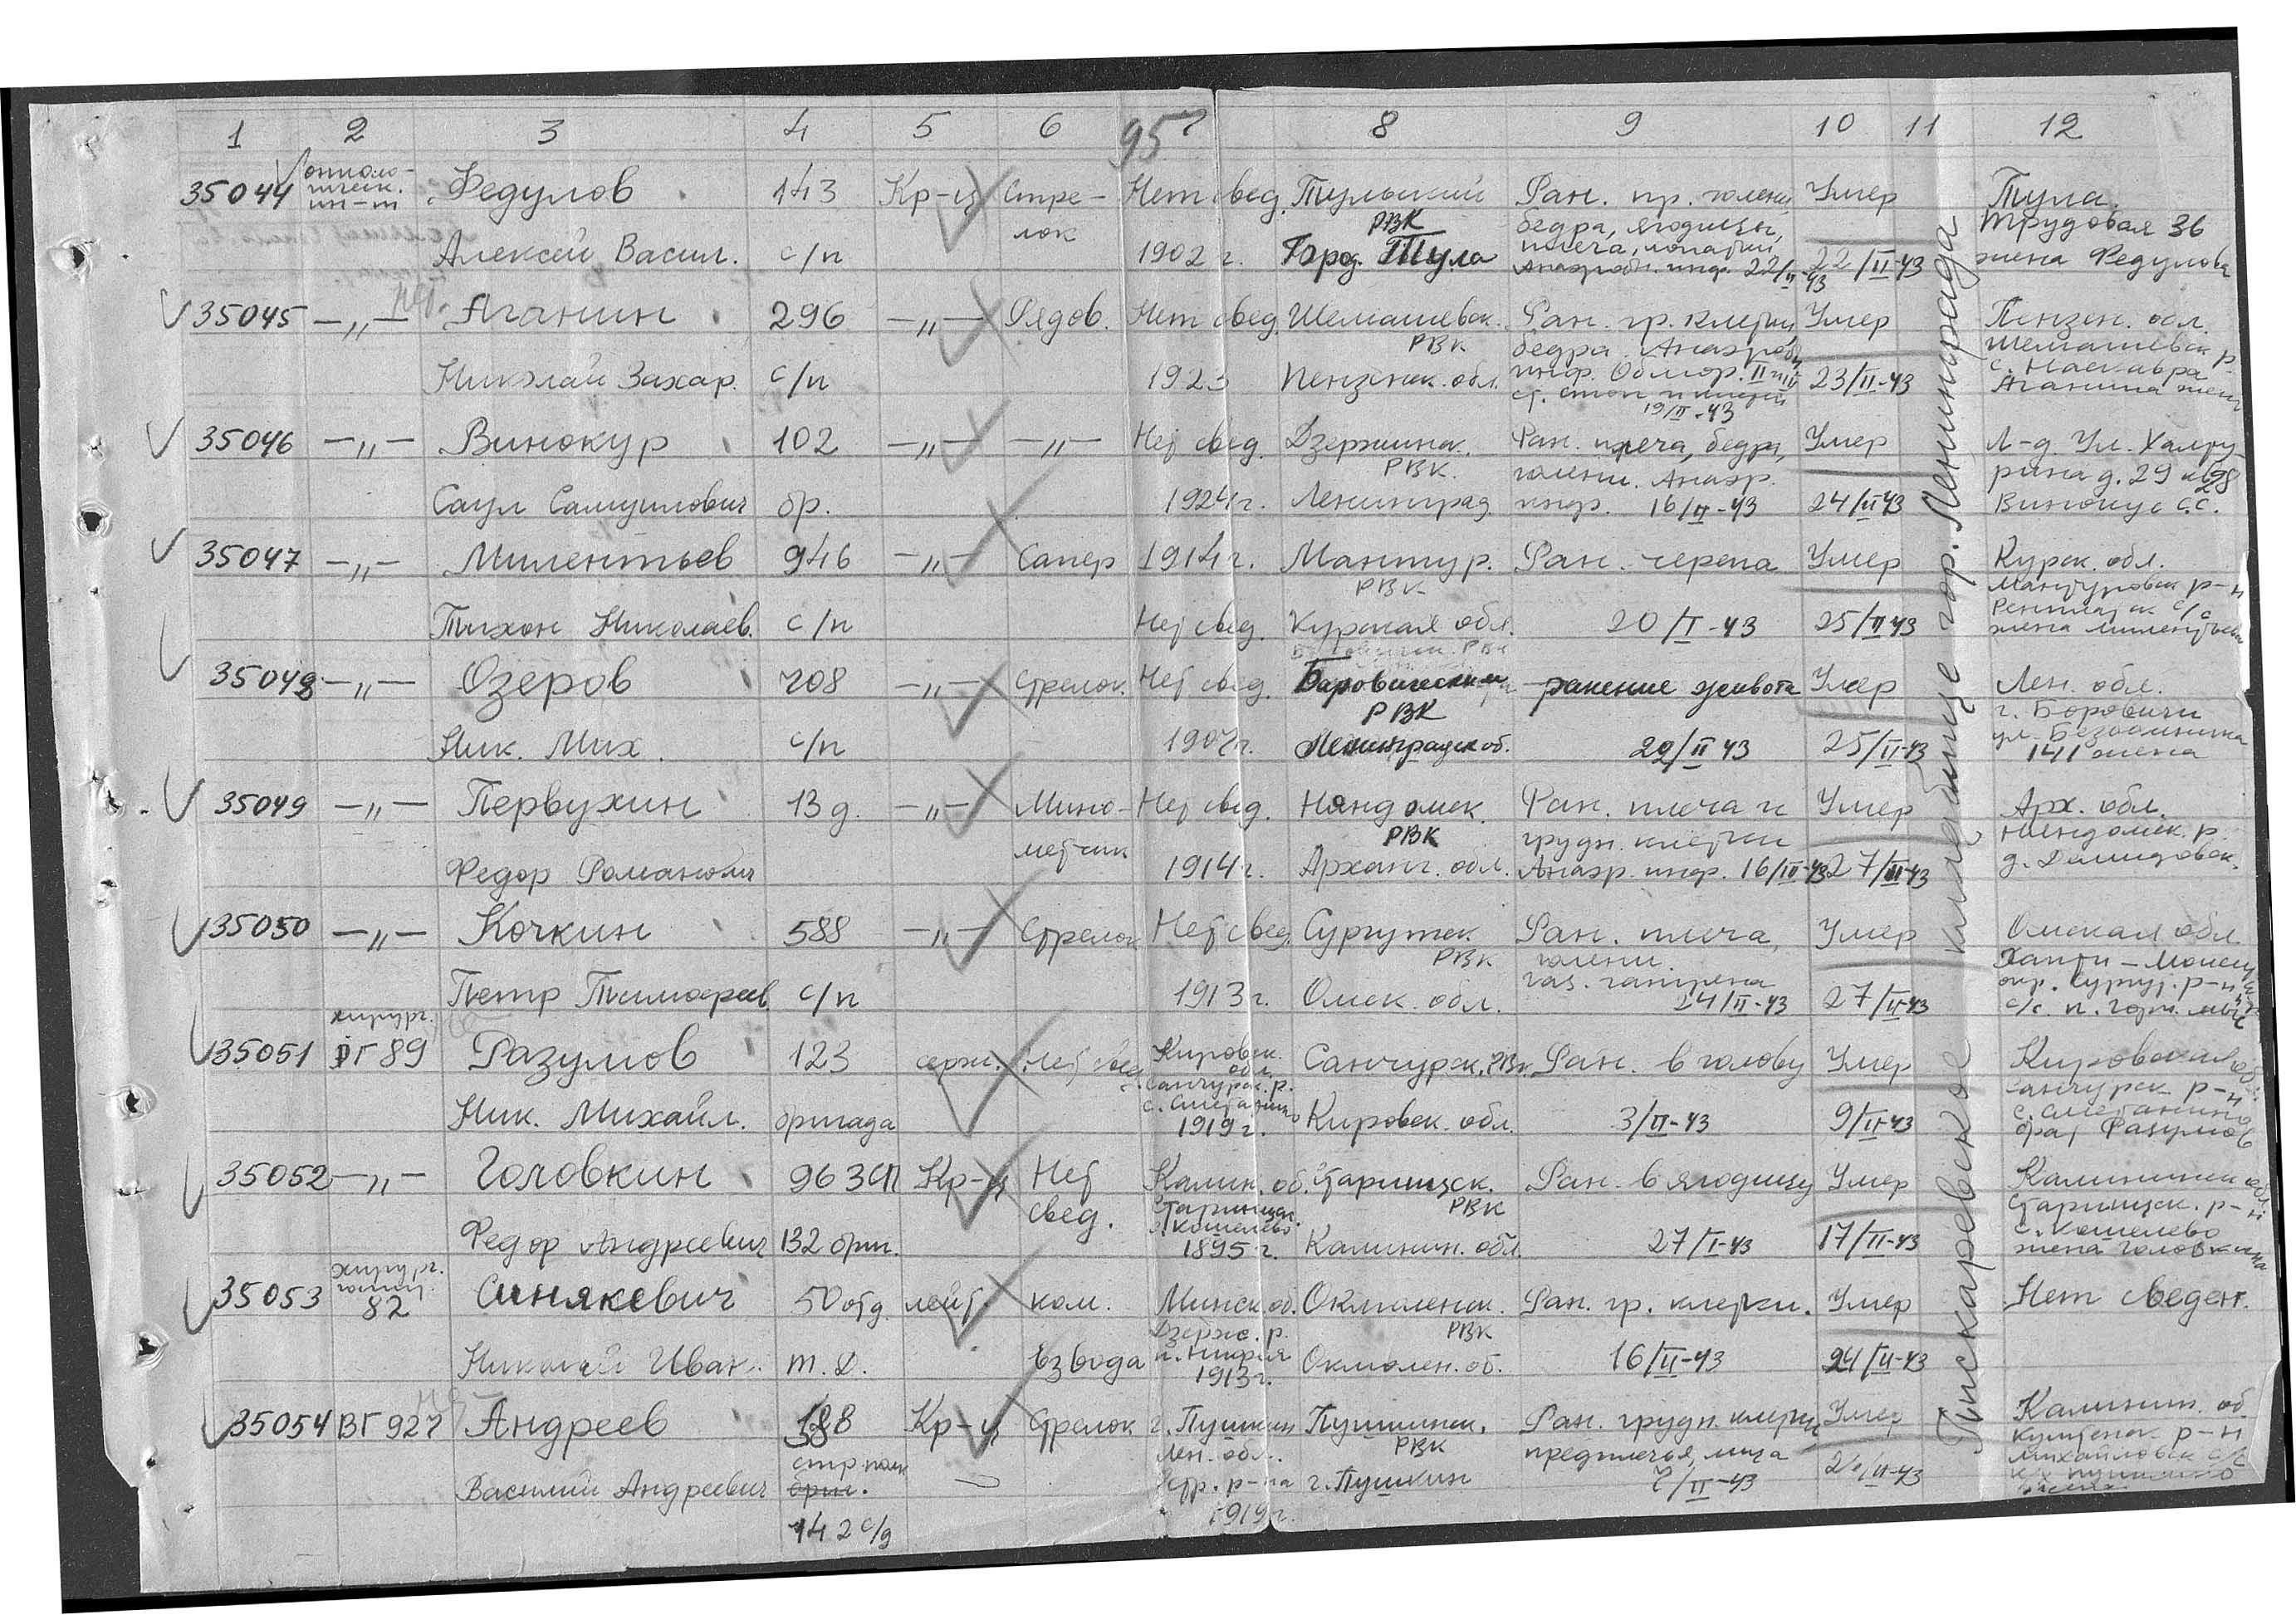 1 2 3 4 5 6 95 7 8 9 10 11 12
35044 Федулов 143 Кр-ц Стре- Нет свед. Тульский Ран. пр. голени Умер Тула
лок РВК бедра, ягодицы, Трудовая 36
Алексей Васил. с/п 1902 г. Город Тула плеча, лопатки 22/II-43 жена Федулова
35045 —„— Аганин 296 —„— Рядов. Нет свед. Шемышевск. Ран. гр. клетки Умер Пензен. обл.
РВК бедра. Анаэробн.
Николай Захар. с/п 192 Пензенск. обл. инф. 23/II-43 Аганина
19/II-43
35046 —„— Винокур 102 —„— —„— Нет свед. Дзержинск. Ран. плеча, бедра, Умер Л-д. Ул. Халту-
РВК. голени. Анаэр. рина д. 29 к 98
Саул Самуилович бр. 1924 г. Ленинград инф. 16/II-43 24/II 43 Винокур С.С.
35047 —„— Милентьев 946 —„— Сапер 1914 г. Мантур. Ран. черепа Умер Курск. обл.
РВК Мантуровск р-н
Тихон Николаев. с/п Нет свед. Курская обл. 20/I-43 25/II 43 жена Милентьева
35048 —„— Озеров 708 —„— Стрелок. Нет свед. Боровический ранение живота Умер Лен. обл.
РВК г. Боровичи
Ник. Мих. с/п 1907 г. Ленинградск об. 22/II 43 25/II-43 141 жена
35049 —„— Первухин 13 д. —„— Мино- Нет свед. Няндомск. Ран. плеча и Умер Арх. обл.
метчик РВК грудн. клетки Няндомск. р.
Федор Романович 1914 г. Арханг. обл. Анаэр. инф. 16/II-43 27/II-43 д. Демидовск.
35050 —„— Кочкин 588 —„— Стрелок Нет свед. Сургутск. Ран. плеча, Умер Омская обл.
РВК голени.
Петр Тимофеев. с/п 1913 г. Омск. обл. газ. гангрена 24/II-43 27/II-43 окр. Сургут. р-н
хирург.
35051 ЭГ 89 Разумов 123 серж. Нет свед. Кировск. обл. Санчурск. РВК Ран. в голову Умер Кировская об.
Санчурск. р. Санчурск р-н
Ник. Михайл. бригада с. Сметанино Кировск. обл. 3/II-43 9/II-43 с. Сметанино
1919 г. брат Разумов
35052 —„— Головкин 963 СП Кр-ц Нет Калин. об. Старицск. Ран. в ягодицу Умер Калининск обл.
свед. Старицк. РВК Старицск. р-н
Федор Андреевич 132 бриг. с. Кошелево Калинин. обл. 27/I-43 17/II-43 с. Кошелево
1895 г. жена Головкина
хирург.
35053 82 Синякевич 50 отд. лейт. ком. Минск. об. Окмоленск. Ран. гр. клетки. Умер Нет сведен.
Дзерж. р. РВК
Николай Иван. т. д. взвода Окмолен. об. 16/II-43 24/II-43
1913 г.
35054 ВГ 927 Андреев 188 Кр-ц Стрелок г. Пушкин Пушкинск. Ран. грудн. клетки Умер Калинин. об.
38 Лен. обл. РВК предплечья, лица р-н
стр. полк Михайловск с/с
Василий Андреевич бриг. г. Пушкин 7/II-43
142 с/д 1919 г.
Пискаревское кладбище гор. Ленинграда